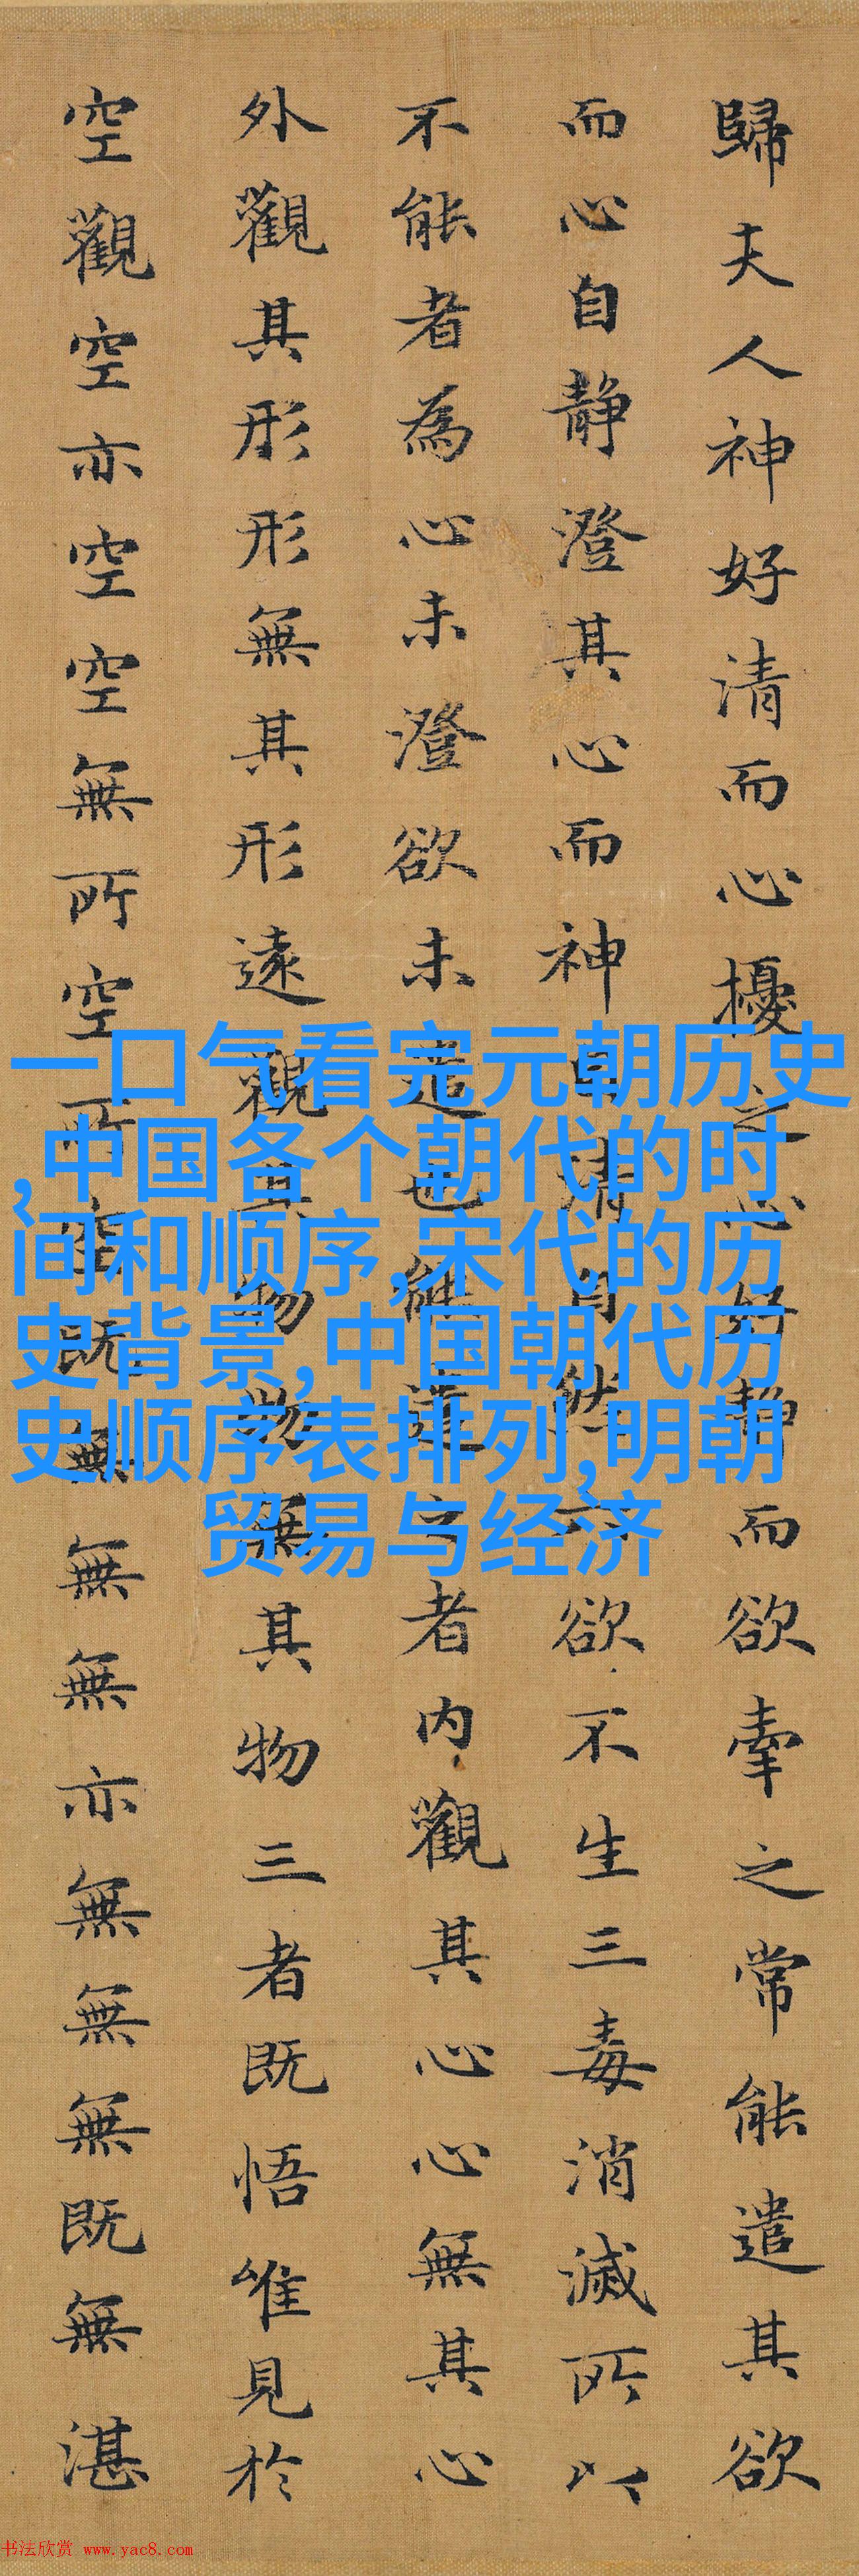 歸夫人神好清而心擾之心好靜而欲牽之常能遣其欲
而心自静澄其心而神自清自然六欲不生三毒消滅所以
不能者為心未澄欲未遣也能遣之者内觀其心心無其心
外觀其形形無其形遠觀其物物無其物三者既悟唯見於
空觀空亦空空無所空所空既無無無亦無無無既無湛
一口气看完元朝历史
,中国各个朝代的时
间和顺序,宋代的历
史背景,中国朝代历
史顺序表排列,明朝
贸易与经济
书法欣赏 www.yac8.com